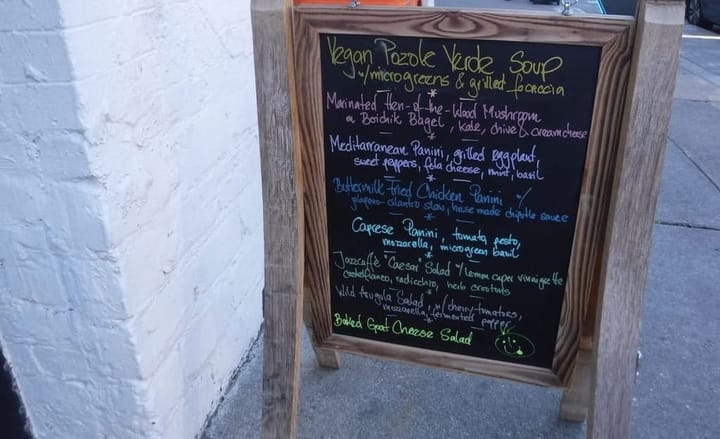 Vegan Pozole Verde Soup
w/microgreens & grilled focaccia
*
Marinated Hen-of-the-Wood Mushroom
on Boichik Bagel, kale, chive & creamcheese
*
Meditarranean Panini, grilled eggplant,
sweet peppers, feta cheese, mint, basil
*
Buttermilk Fried Chicken Panini w/
jalapeno-cilantro slaw, house made chipotle sauce
*
Caprese Panini, tomato pesto,
mozzarella, microgreen basil
Jazzcaffè "Caesar" Salad w/lemon caper vinaigrette
castelfranco, radicchio, herb croutons
Wild Arugula Salad, w/cherry tomatoes,
mozzarella, fermented pepper
Baked Goat Cheese Salad